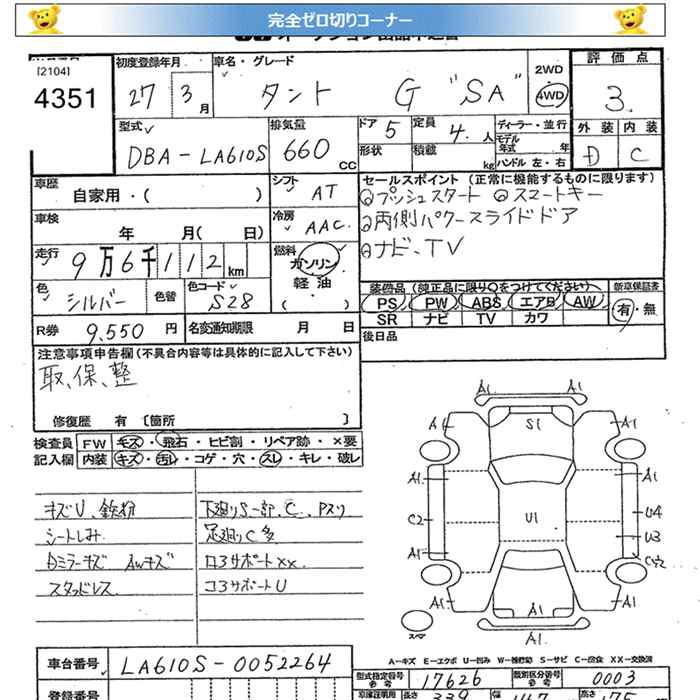 完全ゼロ切りコーナー
[2104]
4351
初度登録年月
27 3 月
車名・グレード
タント G "SA"
2WD
4WD
評価点
3
外装 内装
D C
型式
DBA-LA610S
排気量
660 CC
ドア 5
形状
定員 4 人
積載 kg
ディーラー・並行
モデル年式 年
ハンドル 左・右
車歴
自家用・( )
シフト
AT
セールスポイント (正常に機能するものに限ります)
プッシュスタート スマートキー
両側パワースライドドア
ナビ、TV
車検
年 月( 日)
冷房
AAC
走行
9万6千112 km
燃料
ガソリン
軽油
( )
色
シルバー
色替
色コード
S28
装備品 (純正品に限り○をつけてください)
新車保証書
PS PW ABS エアB AW
有・無
SR ナビ TV カワ
R券 9,550 円
名変通知期限 月 日
後日品
注意事項申告欄(不具合内容等は具体的に記入して下さい)
取、保、整
修復歴 有 〔箇所 〕
検査員
記入欄
FW キズ・飛石・ヒビ割・リペア跡・×要
内装 キズ・汚レ・コゲ・穴・スレ・キレ・破レ
キズU、鉄粉
シートしみ
Dミラーキズ AWキズ
スタッドレス
下廻りS一部、C、Pスリ
足廻りC多
ロ3サポートXX
コ3サポートU
A1 A1
A1 S1 A1
A1 A1
C2 U1 U4
U3
A1 C穴
A1 A1 A1
A1
スペア
A-キズ E-エクボ U-凹み W-補修跡 S-サビ C-腐食 XX-交換済
車台番号
LA610S-0052264
型式指定番号 参考
17626
類別区分番号 参考
0003
登録番号
車庫証明用
長さ 339